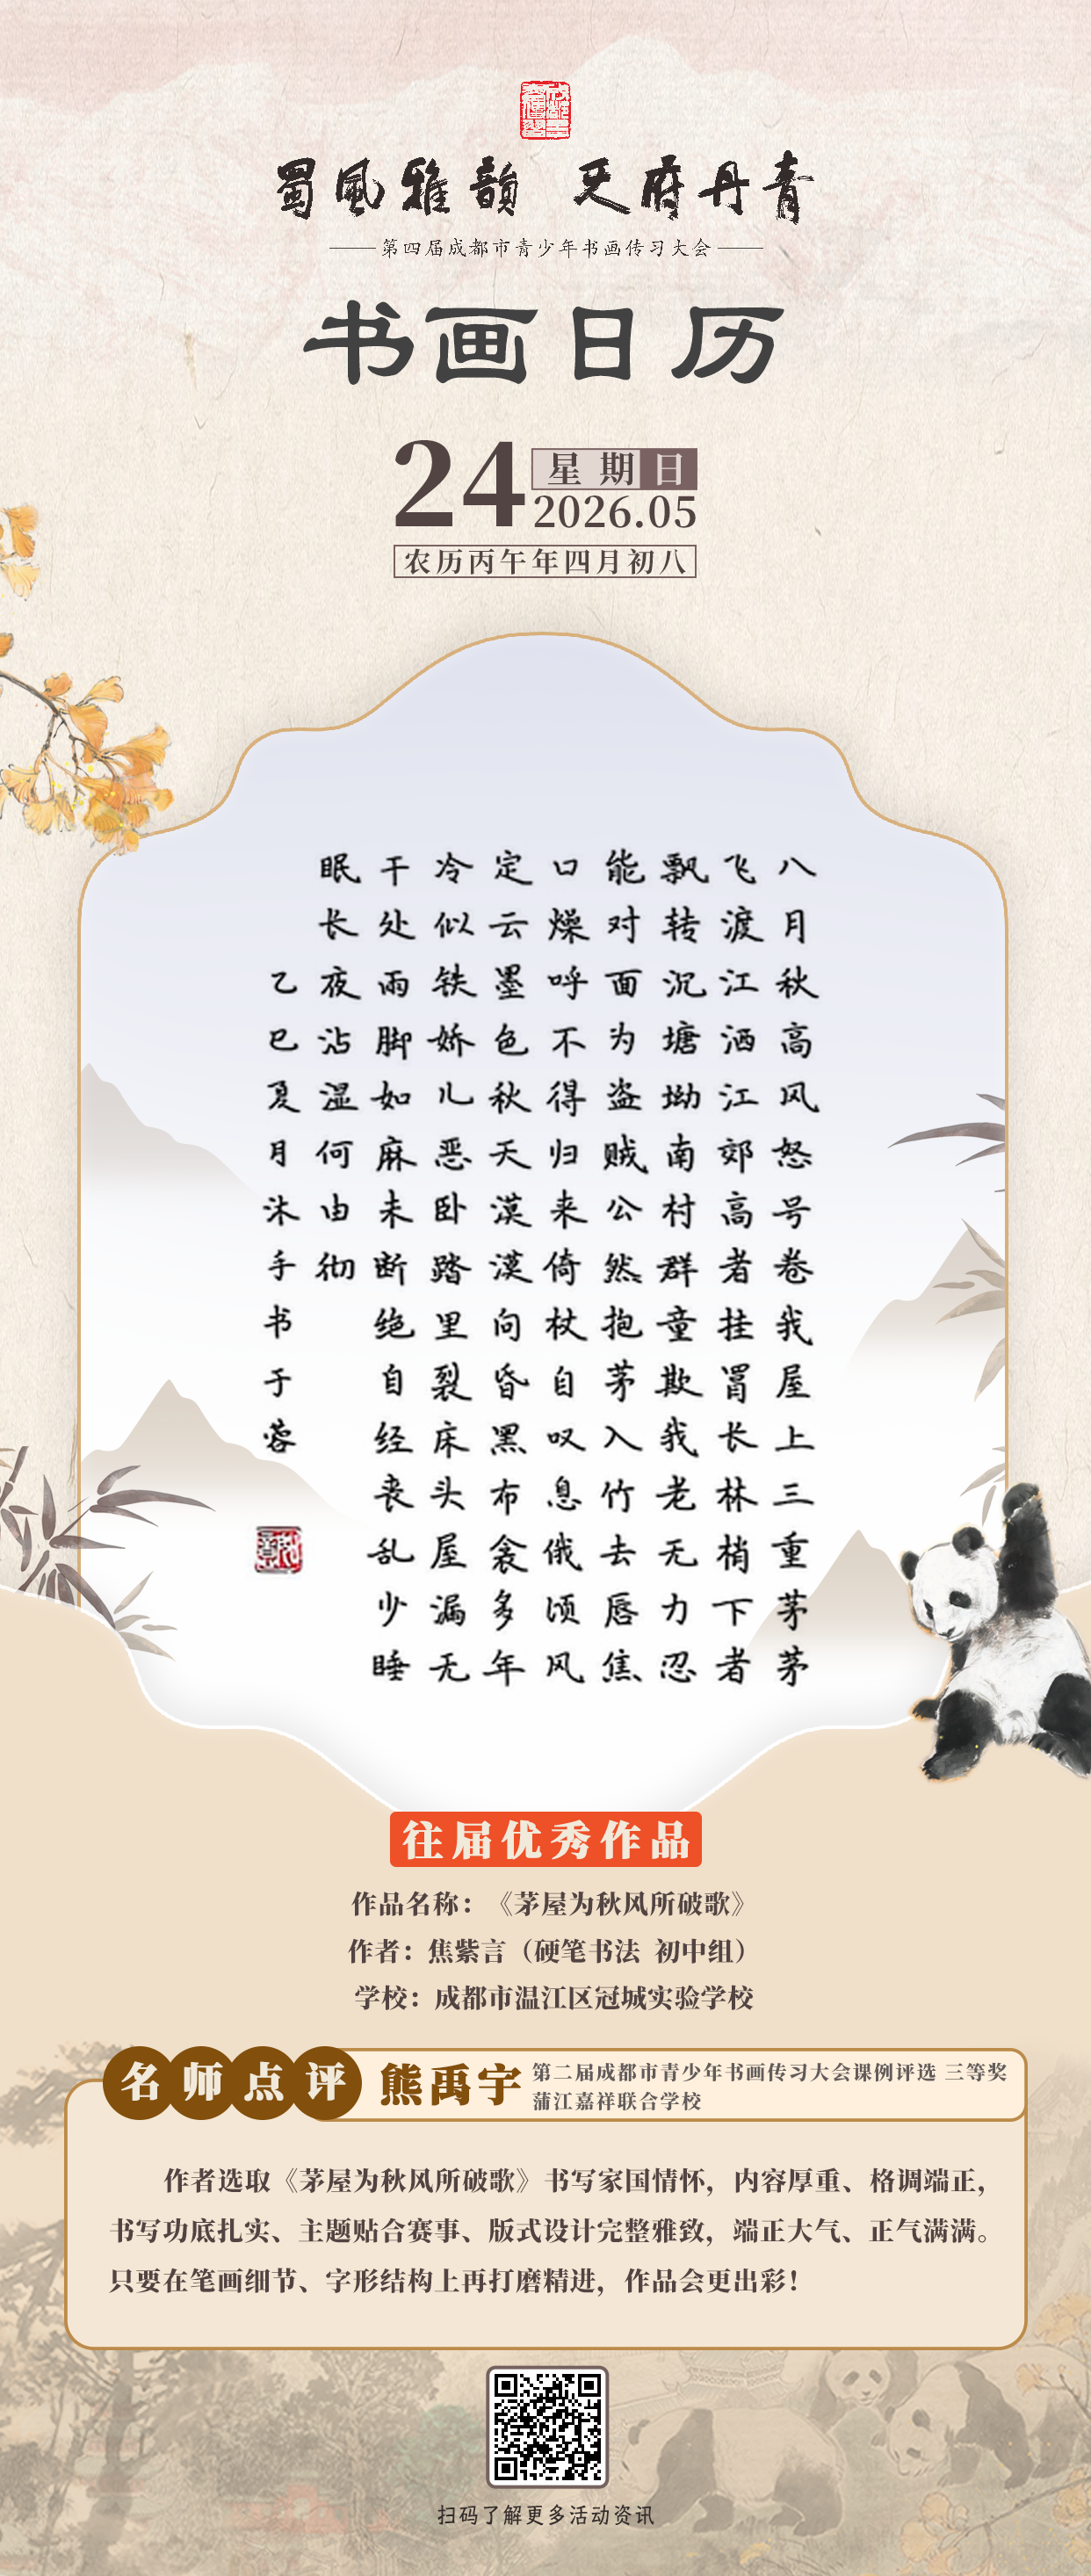 蜀风雅韵 天府丹青
第四届成都市青少年书画传习大会
书画日历
24
星期日
2026.05
农历丙午年四月初八
八月秋高风怒号卷我屋上三重茅茅
飞渡江洒江郊高者挂罥长林梢下者
飘转沉塘坳南村群童欺我老无力忍
能对面为盗贼公然抱茅入竹去唇焦
口燥呼不得归来倚杖自叹息俄顷风
定云墨色秋天漠漠向昏黑布衾多年
冷似铁娇儿恶卧踏里裂床头屋漏无
干处雨脚如麻未断绝自经丧乱少睡
眠长夜沾湿何由彻
乙巳夏月沐手书于蓉
往届优秀作品
作品名称：《茅屋为秋风所破歌》
作者：焦紫言（硬笔书法 初中组）
学校：成都市温江区冠城实验学校
名师点评
熊禹宇
第二届成都市青少年书画传习大会课例评选 三等奖
蒲江嘉祥联合学校
作者选取《茅屋为秋风所破歌》书写家国情怀，内容厚重、格调端正，
书写功底扎实、主题贴合赛事、版式设计完整雅致，端正大气、正气满满。
只要在笔画细节、字形结构上再打磨精进，作品会更出彩！
扫码了解更多活动资讯